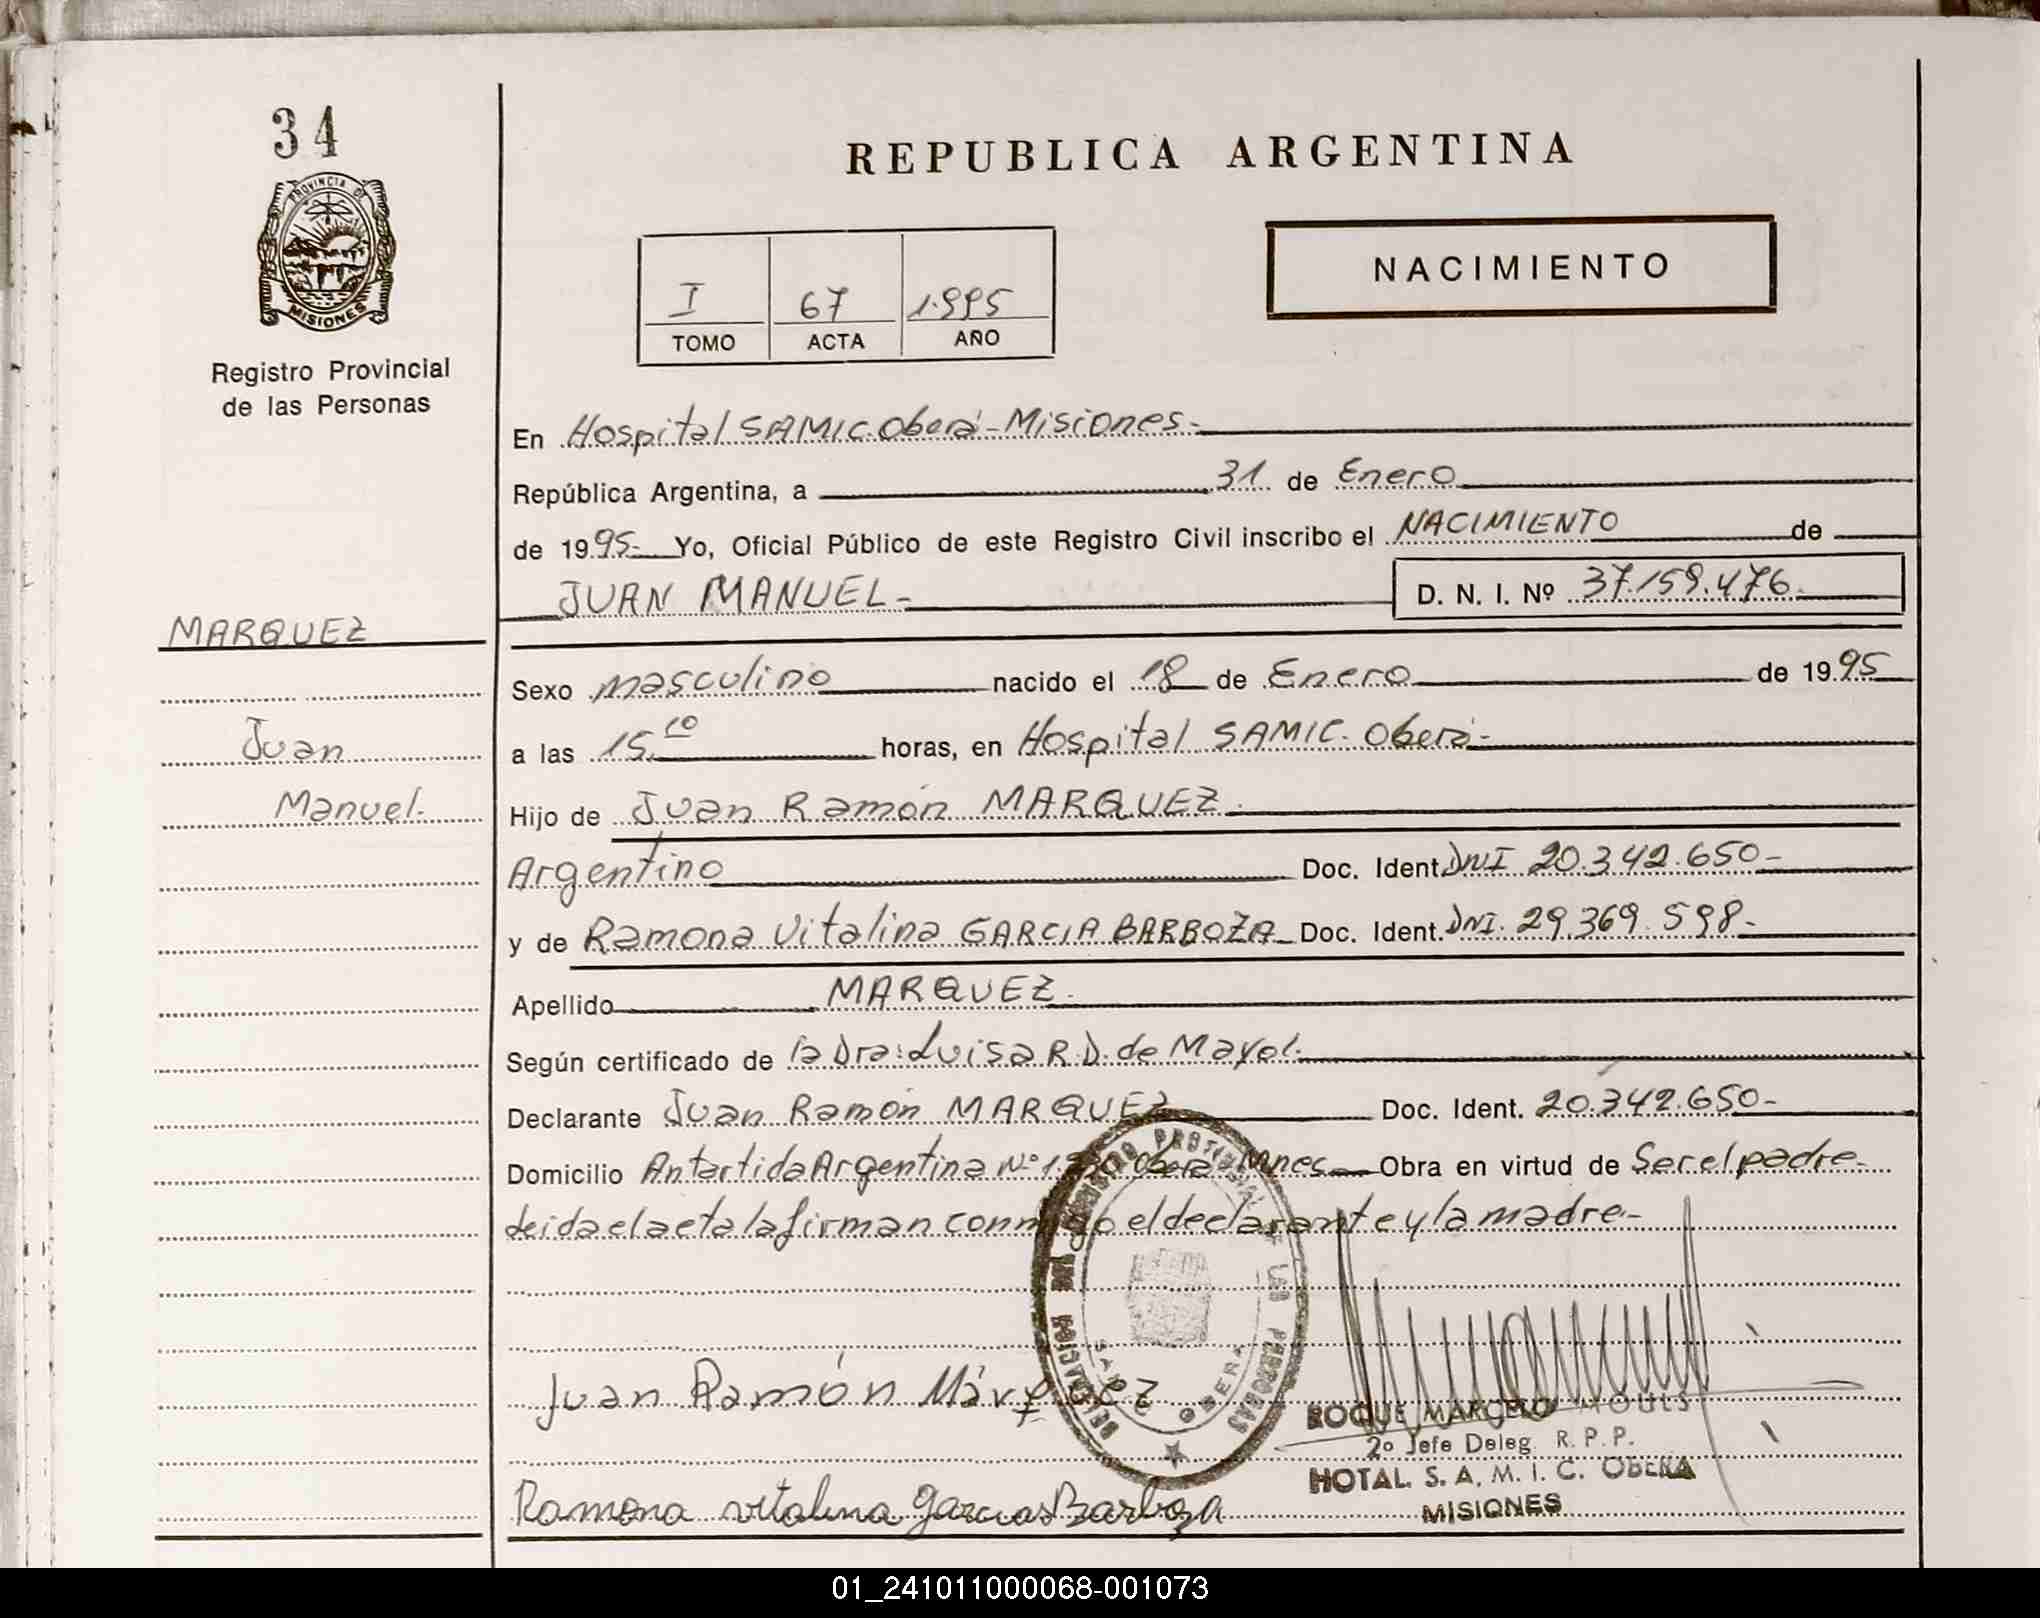 34
PROVINCIA DE
MISIONES
Registro Provincial
de las Personas
REPUBLICA ARGENTINA
I 67 1.995
TOMO ACTA AÑO
NACIMIENTO
En Hospital SAMIC. Oberá - Misiones.-
República Argentina, a 31 de Enero
de 1995.- Yo, Oficial Público de este Registro Civil inscribo el NACIMIENTO de
JUAN MANUEL.-
D. N. I. Nº 37.159.476.
MARQUEZ
Juan
Manuel.-
Sexo masculino nacido el 18 de Enero de 1995
a las 15,10 horas, en Hospital SAMIC. Oberá.-
Hijo de Juan Ramón MARQUEZ.
Argentino Doc. Ident. DNI 20.342.650-
y de Ramona Vitalina GARCIA BARBOZA Doc. Ident. DNI. 29.369.598-
Apellido MARQUEZ.
Según certificado de la Dra: Luisa R.D. de Mayol.
Declarante Juan Ramón MARQUEZ Doc. Ident. 20.342.650-
Domicilio Antartida Argentina Nº Oberá Mnes.- Obra en virtud de Ser el padre-
leida el acta la firman conmigo el declarante y la madre.-
Juan Ramón Márquez
DELEGACION
LAS PERSONAS
OBERA
ROQUE MARCELO
2º Jefe Deleg. R. P. P.
HOTAL. S. A. M. I. C. OBERA
MISIONES
Ramona vitalina Garcias Barboza
01_241011000068-001073